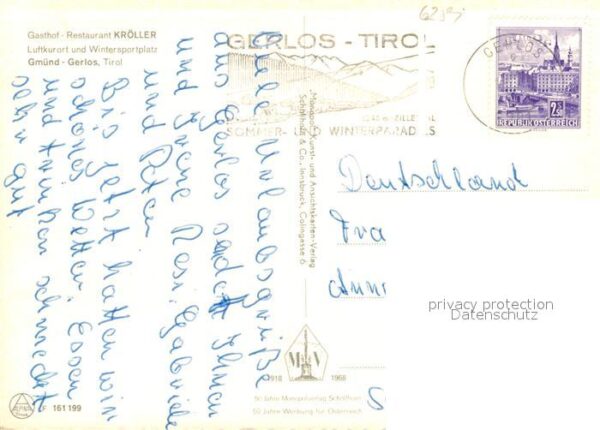 Gasthof - Restaurant KRÖLLER
Luftkurort und Wintersportplatz
Gmünd - Gerlos, Tirol
GERLOS - TIROL
SOMMER- WINTERPARADIES
GERLOS
2.50
REPUBLIK ÖSTERREICH
Viele Urlaubsgrüße
aus Gerlos sendet Ihnen
und Irene Resi, Gabriele
und Peter
Bis jetzt hatten wir
schönes Wetter. Essen
und trinken schmeckt
sehr gut
Monopol Kunst- und Ansichtskarten-Verlag
Schöllhorn & Co., Innsbruck, Colingasse 6
Deutschland
Frau
privacy protection
Datenschutz
M V
1918 1968
50 Jahre Monopolverlag Schöllhorn
50 Jahre Werbung für Österreich
F 161 199